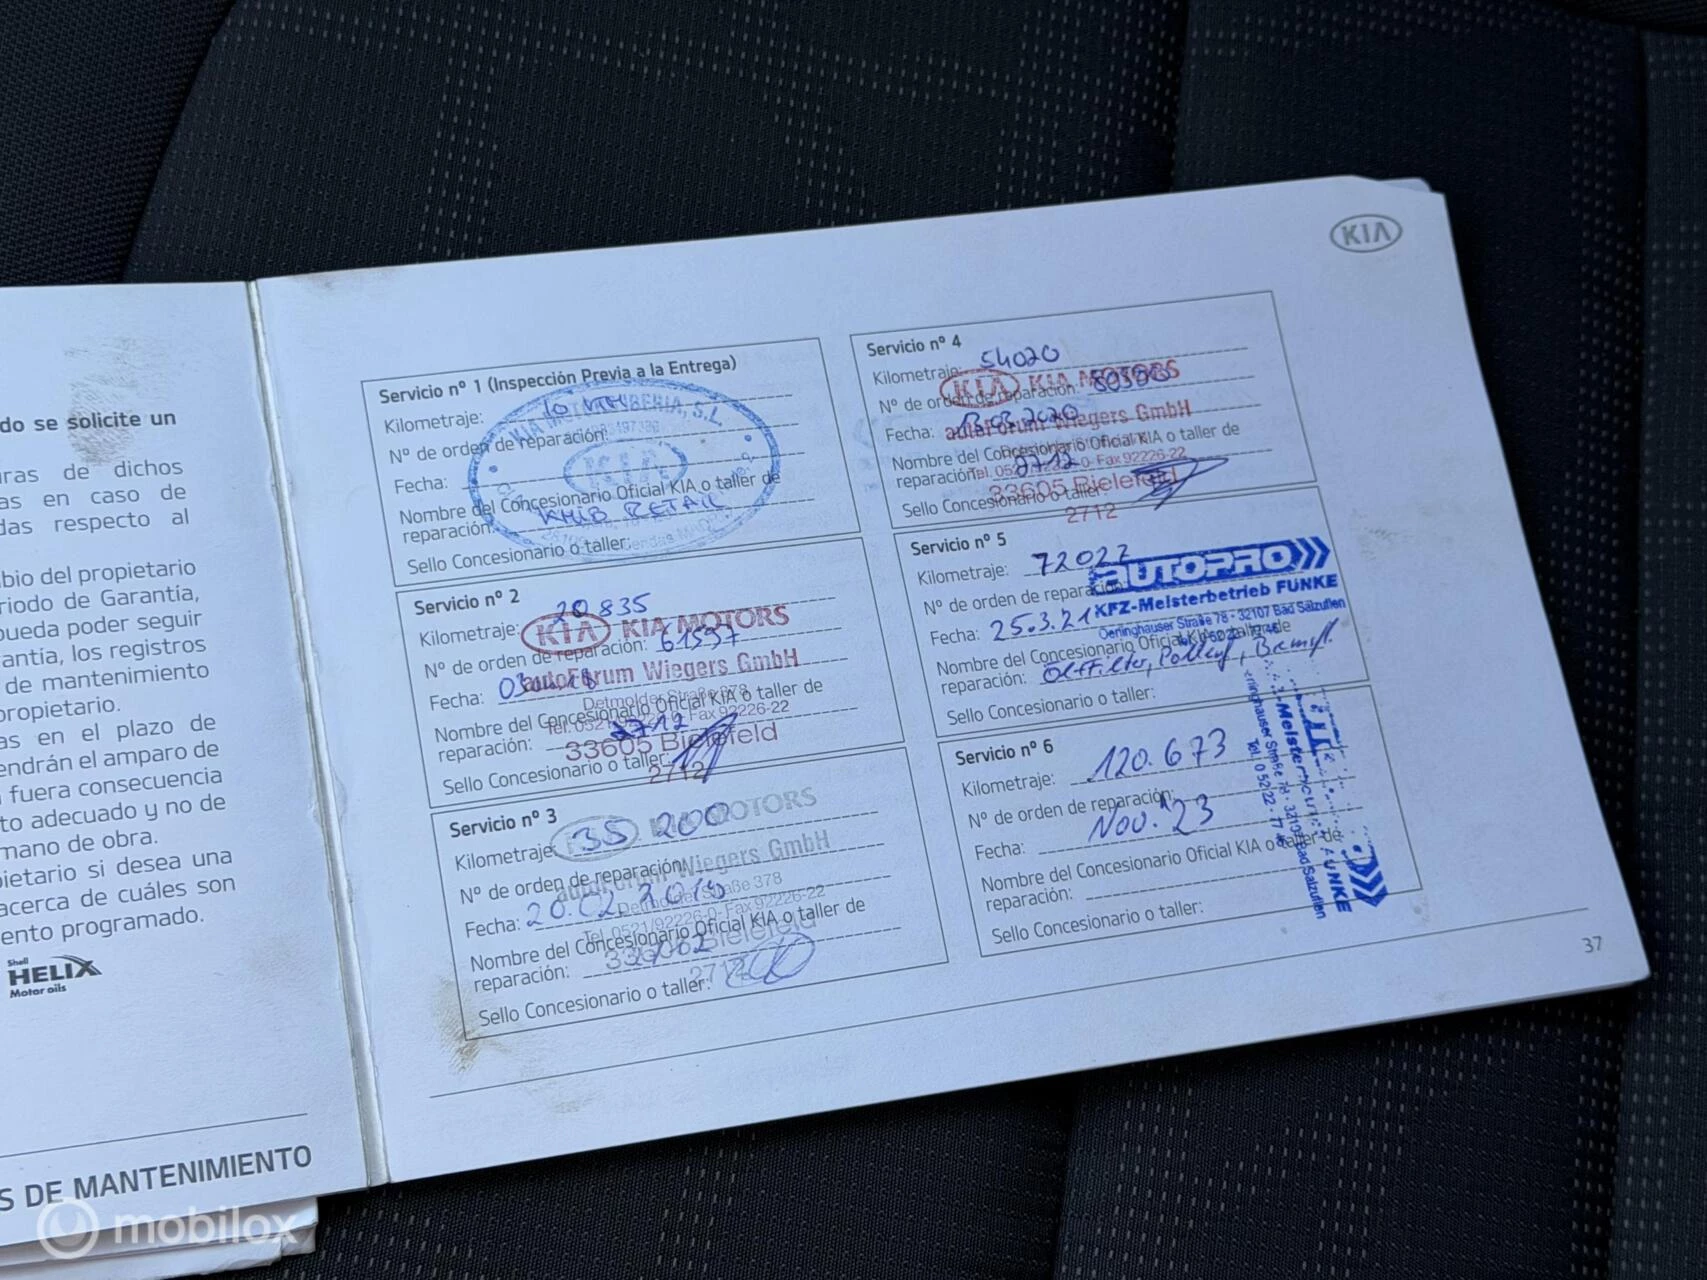 do se solicite un
uras de dichos
as en caso de
das respecto al
bio del propietario
riodo de Garantía,
pueda poder seguir
rantía, los registros
de mantenimiento
propietario.
as en el plazo de
endrán el amparo de
fuera consecuencia
to adecuado y no de
mano de obra.
pietario si desea una
acerca de cuáles son
ento programado.
Shell
HELIX
Motor oils
S DE MANTENIMIENTO
mobilox
KIA
Servicio nº 1 (Inspección Previa a la Entrega)
Kilometraje: 10
Nº de orden de reparación:
KIA
Fecha:
Nombre del Concesionario Oficial KIA o taller de
reparación: KMIB RETAIL
Sello Concesionario o taller:
Servicio nº 2
Kilometraje: 20 835
KIA KIA MOTORS
Nº de orden de reparación: 61597
autoForum Wiegers GmbH
Fecha:
Nombre del Concesionario Oficial KIA o taller de
reparación: 2712
33605 Bielefeld
Sello Concesionario o taller:
2712
Servicio nº 3
Kilometraje: 35 200
MOTORS
Nº de orden de reparación:
autoForum Wiegers GmbH
Detmolder Straße 378
Fecha: 20.02.2019
Tel. 0521/92226-0 - Fax 92226-22
Nombre del Concesionario Oficial KIA o taller de
reparación:
33605 Bielefeld
Sello Concesionario o taller:
2712
Servicio nº 4
Kilometraje: 54020
KIA KIA MOTORS
Nº de orden de reparación:
Fecha: 13.03.2020
autoForum Wiegers GmbH
Nombre del Concesionario Oficial KIA o taller de
reparación: 2712
Tel. 0521/92226-0 - Fax 92226-22
33605 Bielefeld
Sello Concesionario o taller:
2712
Servicio nº 5
Kilometraje: 72022
AUTOPRO
Nº de orden de reparación:
KFZ-Meisterbetrieb FUNKE
Fecha: 25.3.21
Oerlinghauser Straße 78 - 32107 Bad Salzuflen
Nombre del Concesionario Oficial KIA o taller de
reparación: Öl+Filter, Pollenf, Bremsfl.
Sello Concesionario o taller:
Servicio nº 6
Kilometraje: 120.673
Nº de orden de reparación:
Fecha: Nov. '23
Nombre del Concesionario Oficial KIA o taller de
reparación:
Sello Concesionario o taller:
37